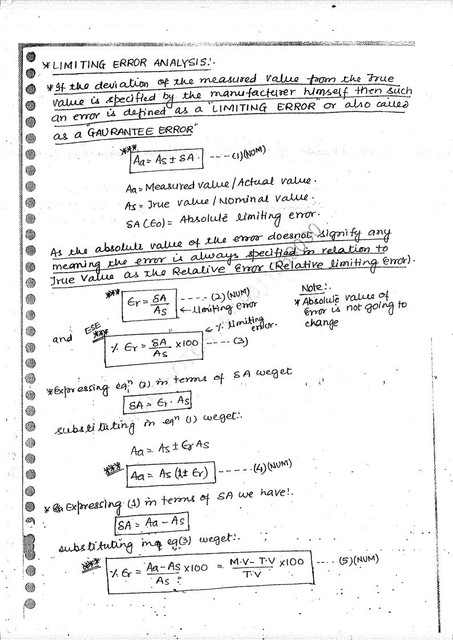 * LIMITING ERROR ANALYSIS:-
* If the deviation of the measured value from the True
value is specified by the manufacturer himself then such
an error is defined as a "LIMITING ERROR or also called
as a "GAURANTEE ERROR"
*** Aa = As ± SA . ----(1)(NUM)
Aa = Measured value / Actual value.
As = True value / Nominal value.
SA (Eo) = Absolute limiting error.
As the absolute value of the error doesnot signify any
meaning the error is always specified in relation to
True value as the Relative Error (Relative limiting Error).
*** Er = SA / As ----(2)(NUM)
← limiting error
Note:-
* Absolute value of
Error is not going to
change
and ESE *** % Er = SA / As ×100 ----(3)
← % limiting
error.
* Expressing eqn (2) in terms of SA weget
SA = Er . As
substituting in eqn (1) weget:-
Aa = As ± Er As
*** Aa = As (1 ± Er) -----(4)(NUM)
* Expressing (1) in terms of SA we have:-
SA = Aa - As
substituting in eq(3) weget:-
*** % Er = Aa - As / As ×100 = M.V - T.V / T.V ×100 ----(5)(NUM)